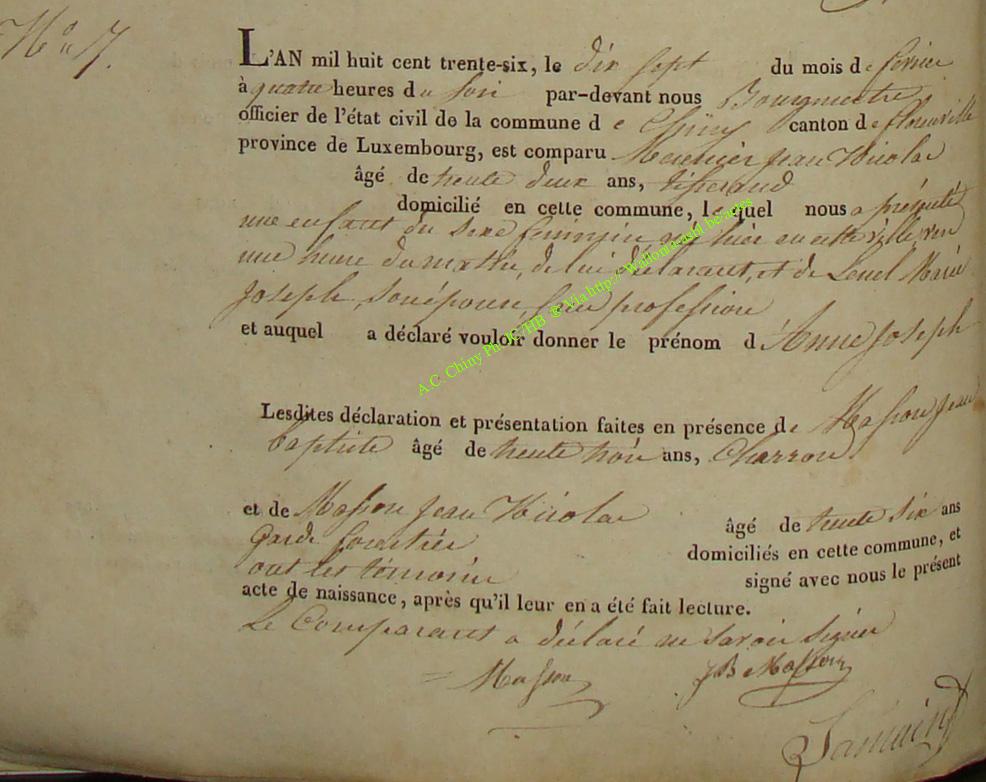 N° 17.
L'AN mil huit cent trente-six, le dix sept du mois de février
à quatre heures du soir par-devant nous Bourgmestre
officier de l'état civil de la commune de Chiny canton de florenville
province de Luxembourg, est comparu Meunier Jean Nicolas
âgé de trente deux ans, tisserand
domicilié en cette commune, lequel nous a présenté
une enfant du sexe feminin, née hier en cette ville, vers
une heure du matin, de lui déclarant, et de Marie
Joseph, son épouse, sans profession
et auquel a déclaré vouloir donner le prénom d'Anne Joseph
A.C. Chiny Ph JC/HB ® Via http:// Wallonia asbl be/actes
Lesdites déclaration et présentation faites en présence de Masson Jean
baptiste âgé de trente trois ans, Charron
et de Masson Jean Nicolas âgé de trente six ans
garde forestier domiciliés en cette commune, et
ont les témoins signé avec nous le présent
acte de naissance, après qu'il leur en a été fait lecture.
Le Comparant a déclaré ne savoir signer
Masson JB Masson